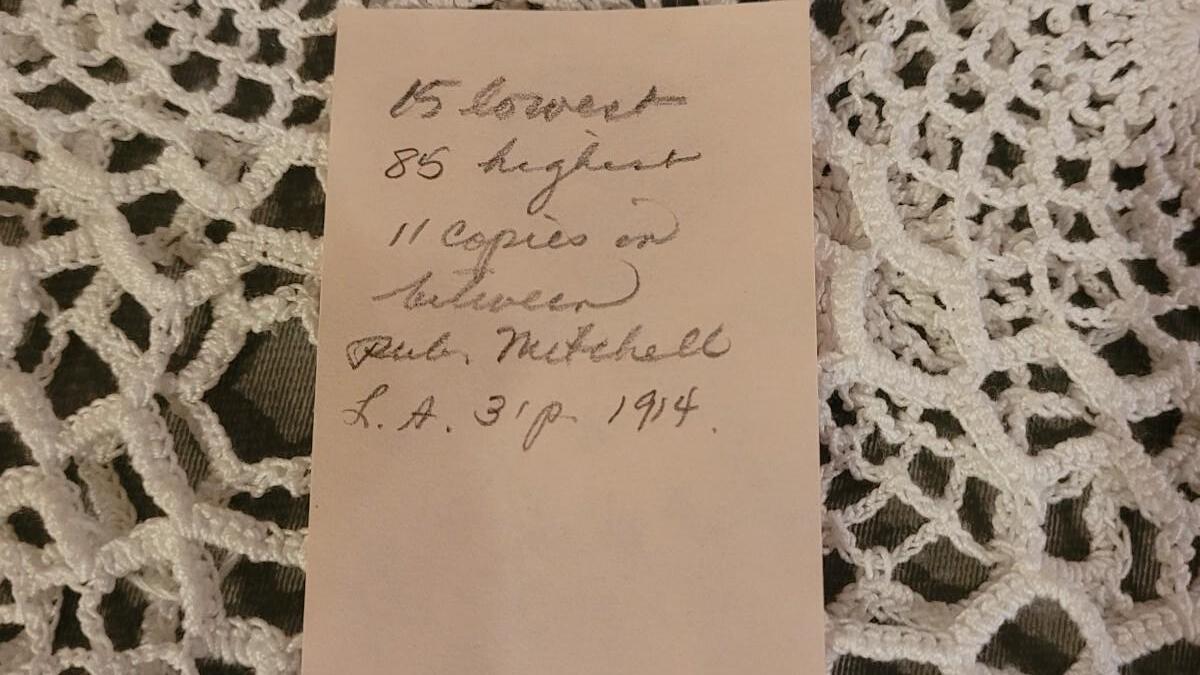 15 lowest
85 highest
11 copies in
between
pub. Mitchell
L. A. 31 p. 1914.